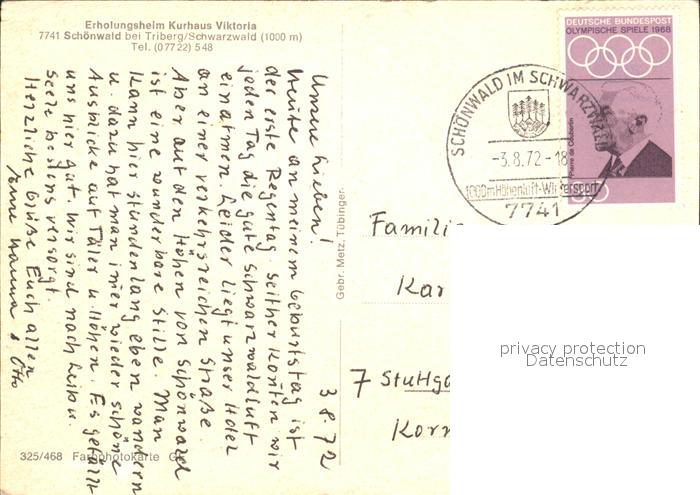 Erholungsheim Kurhaus Viktoria
7741 Schönwald bei Triberg/Schwarzwald (1000 m)
Tel. (07722) 548
3 8. 72
Unsere Lieben!
Heute an meinem Geburtstag ist
der erste Regentag seither konnten wir
jeden Tag die gute Schwarzwaldluft
einatmen. Leider liegt unser Hotel
an einer verkehrsreichen Straße.
Aber auf den Höhen von Schönwald
ist eine wunderbare Stille. Man
kann hier stundenlang eben wandern
u. dazu hat man immer wieder schöne
Ausblicke auf Täler u. Höhen. Es gefällt
uns hier gut. Wir sind nach Leib u.
Seele bestens versorgt.
Herzliche Grüße Euch allen
Hanna & Otto
Gebr. Metz, Tübingen
325/468 Farbphotokarte
DEUTSCHE BUNDESPOST
OLYMPISCHE SPIELE 1968
Pierre de Coubertin
SCHÖNWALD IM SCHWARZWALD
-3.8.72-18
1000m Höhenluft-Wintersport
7741
Familie
Kar
7 Stuttga
Korn
privacy protection
Datenschutz